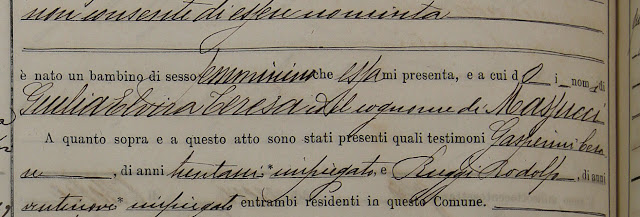 non consente di essere nominata
è nato un bambino di sesso femminino che essa mi presenta, e a cui do i nomi di
Giulia Elvira Teresa col cognome di Masucci
A quanto sopra e a questo atto sono stati presenti quali testimoni Gasperini Cesa
re, di anni trentasei impiegato, e Ruggi Rodolfo, di anni
ventinove impiegato entrambi residenti in questo Comune.